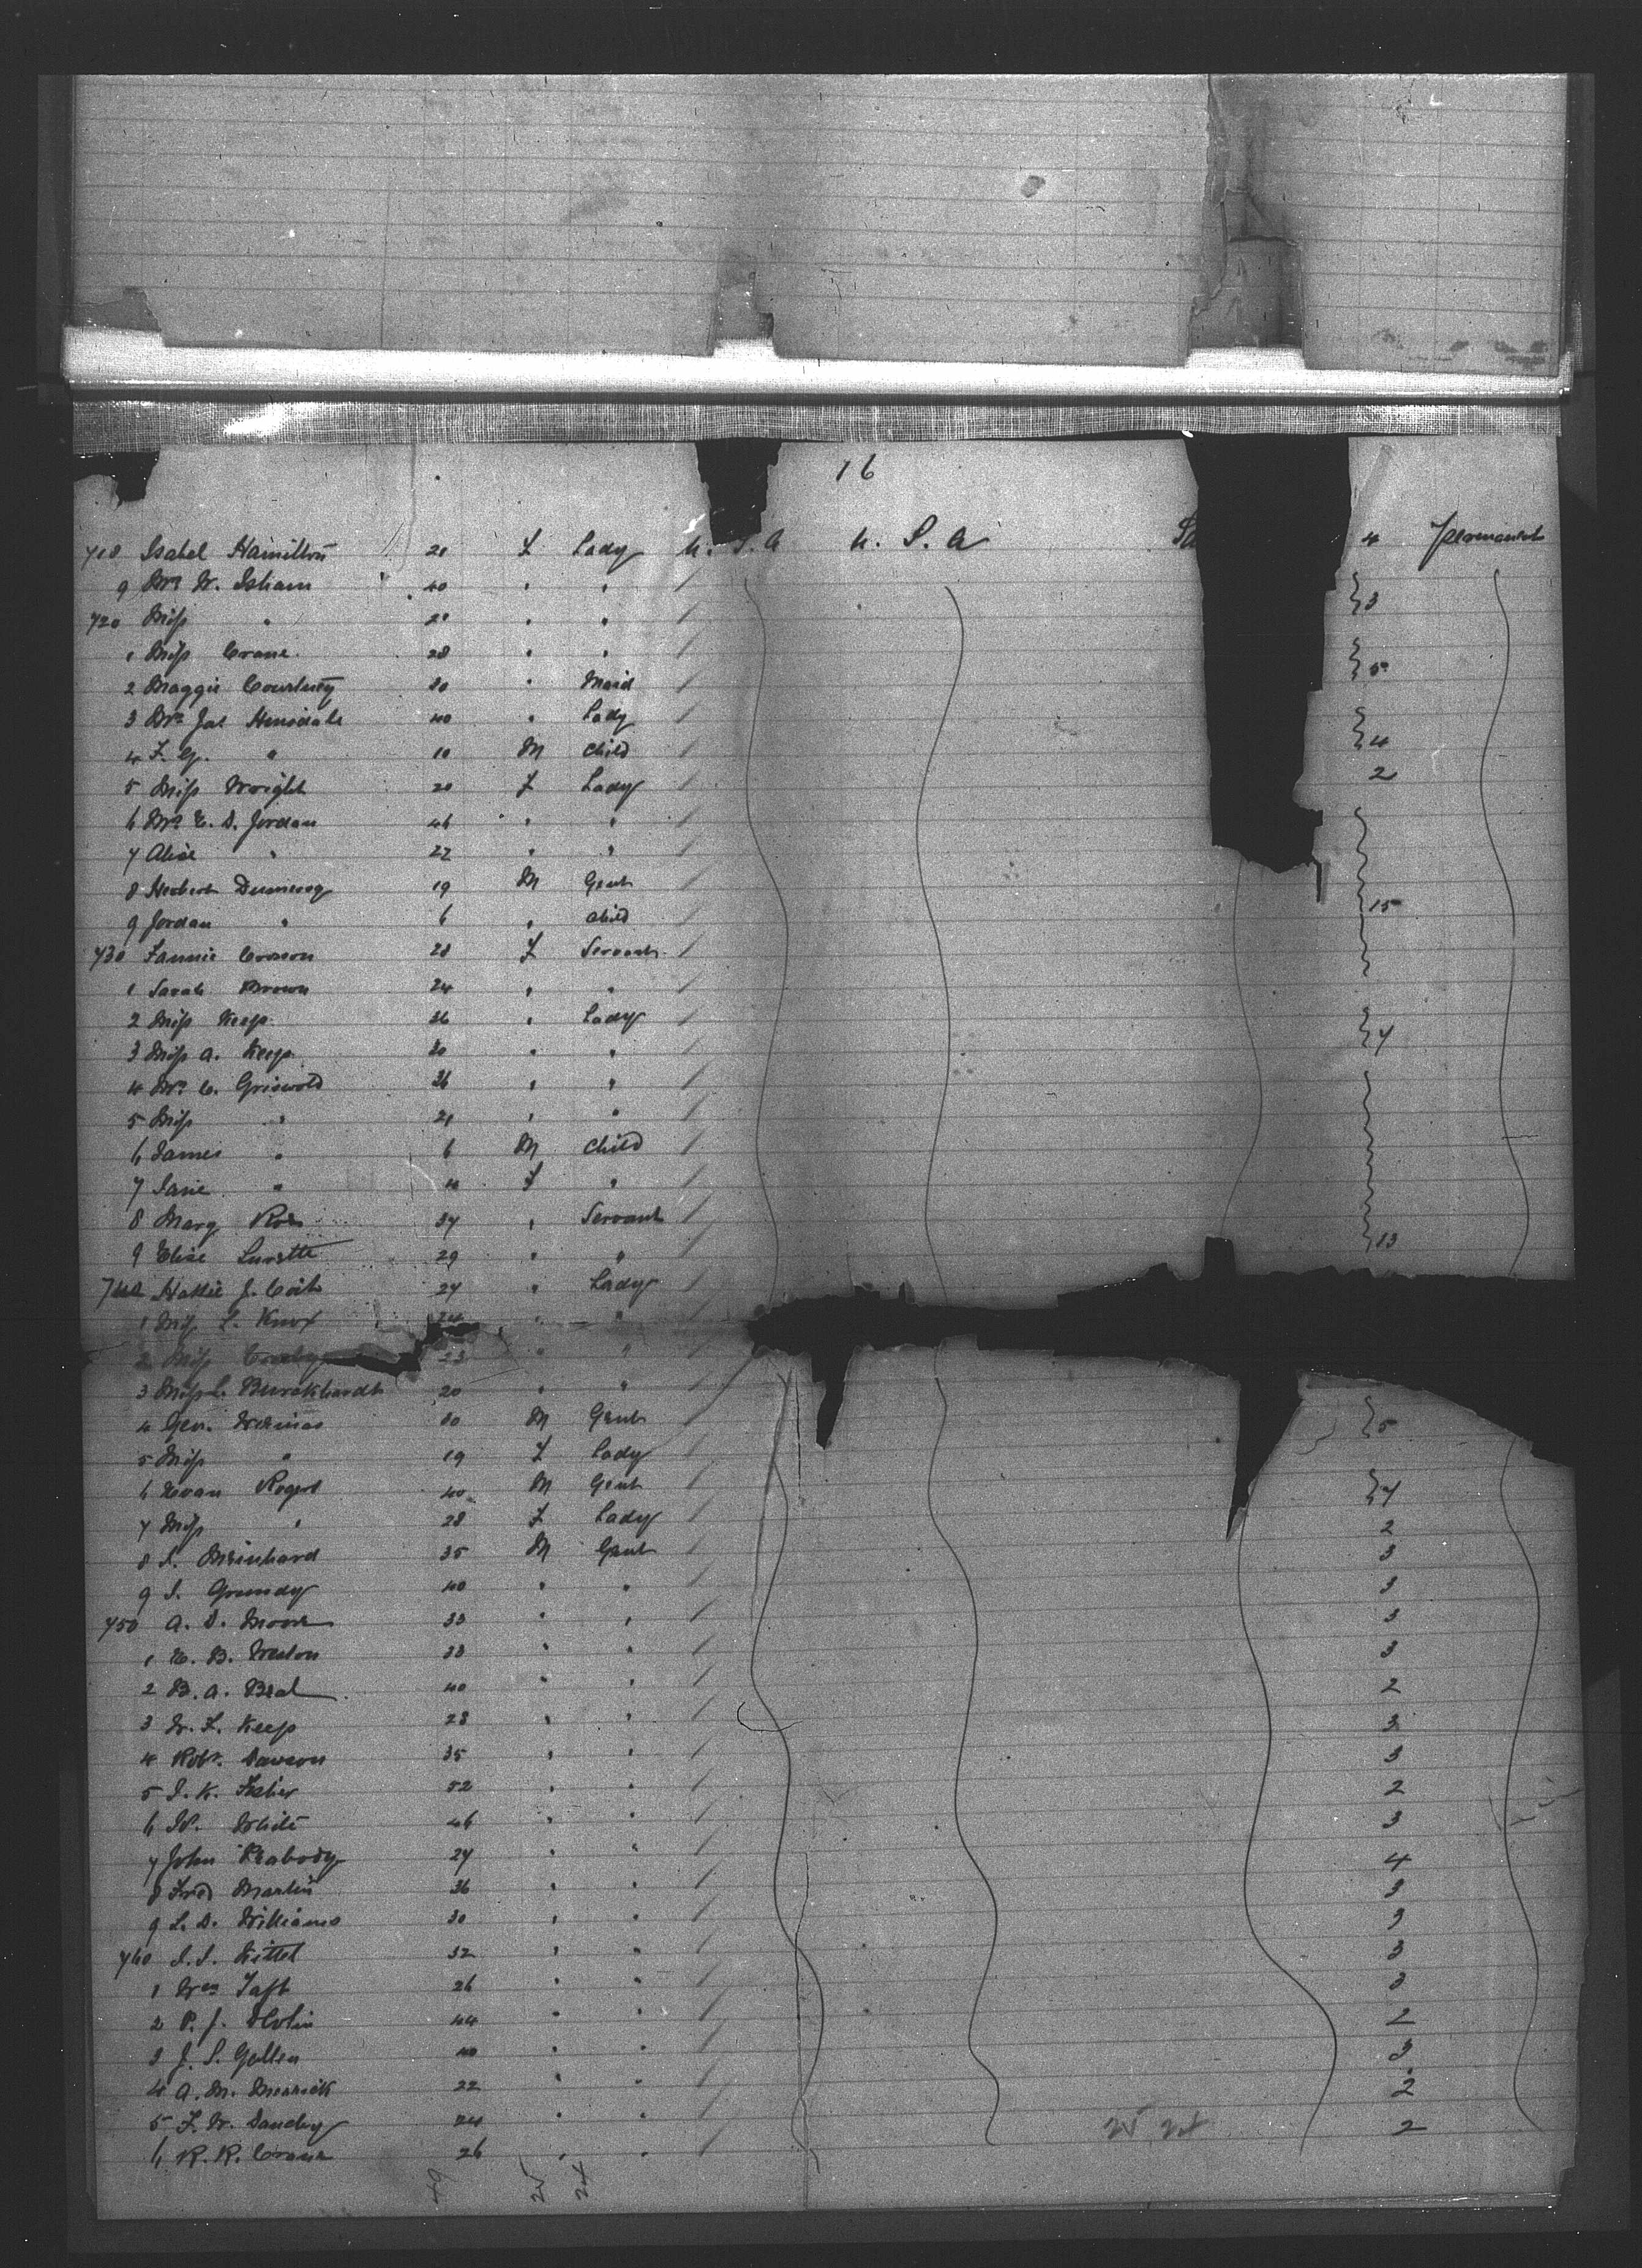 16
718 Isabel Hamilton 21 F Lady U.S.A U.S.A 4 permanent
9 Mrs W. Isham 40 " " 3
720 Miss " 21 " "
1 Miss Crane 28 " " 5
2 Maggie Courtney 30 " Maid
3 Mrs Jas Hinsdale 40 " Lady 4
4 F. G. " 10 M Child
5 Miss Wright 20 F Lady 2
6 Mrs E. D. Jordan 46 " "
7 Alice " 22 " "
8 Herbert Dumaresq 19 M Gent 15
9 Jordan " 6 " Child
730 Fannie 28 F Servant
1 Sarah Brown 24 " "
2 Miss Keep 36 " Lady 7
3 Miss A. Keep 30 " "
4 Mrs C. Griswold 36 " "
5 Miss " 21 " "
6 James " 6 M Child
7 Janie " 4 F "
8 Marg Ross 37 " Servant
9 Elise 29 " " 13
740 Hattie J. Coit 27 " Lady
1 Miss L. Knox 24 " "
2 Miss 23 " "
3 Miss L. Burckhardt 20 " "
4 Geo. 50 M Gent 5
5 Miss " 19 F Lady
6 Evan Rogers 40 M Gent 7
7 Miss " 28 F Lady 2
8 I. Meinhard 35 M Gent 3
9 S. Grundy 40 " " 3
750 A. D. Moore 33 " " 3
1 E. B. Weston 33 " " 3
2 B. A. Beal 40 " " 2
3 W. F. Keep 28 " " 3
4 Robt. Dawson 35 " " 3
5 I. K. Fisher 52 " " 2
6 W. White 46 " " 3
7 John Peabody 27 " " 4
8 Fred Martin 36 " 3
9 L. D. Williams 30 " " 3
760 J. S. Kittel 32 " " 3
1 Wm Taft 26 " " 3
2 P. J. 44 " " 2
3 J. S. Gallen 40 " " 3
4 A. M. Merrick 22 " " 2
5 F. W. Dandy 24 " " 2
6 R. R. Crane 26 " "